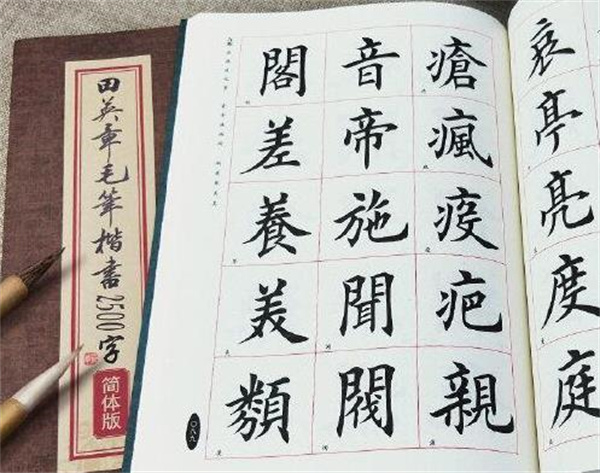 田英章毛筆楷書2500字
简体版
哀亭亮度庭
瘡瘋疫疤親
音帝施聞閥
閣差養美類
〇八九